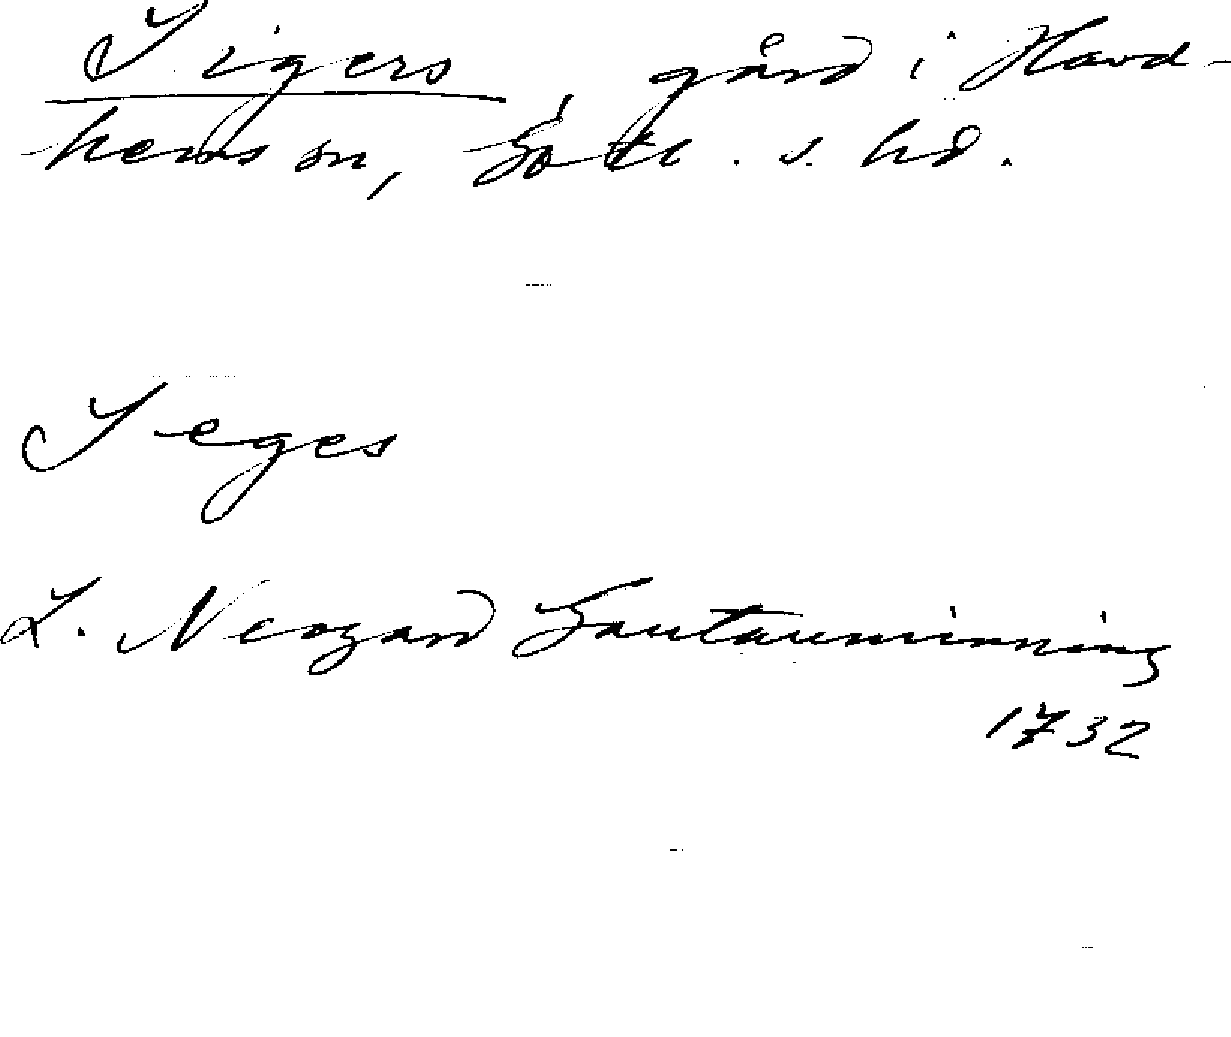 Sigers, gård i Havd-
hems sn, Gotl. s. hd.
Seges
L. Neogard Gautauminning
1732